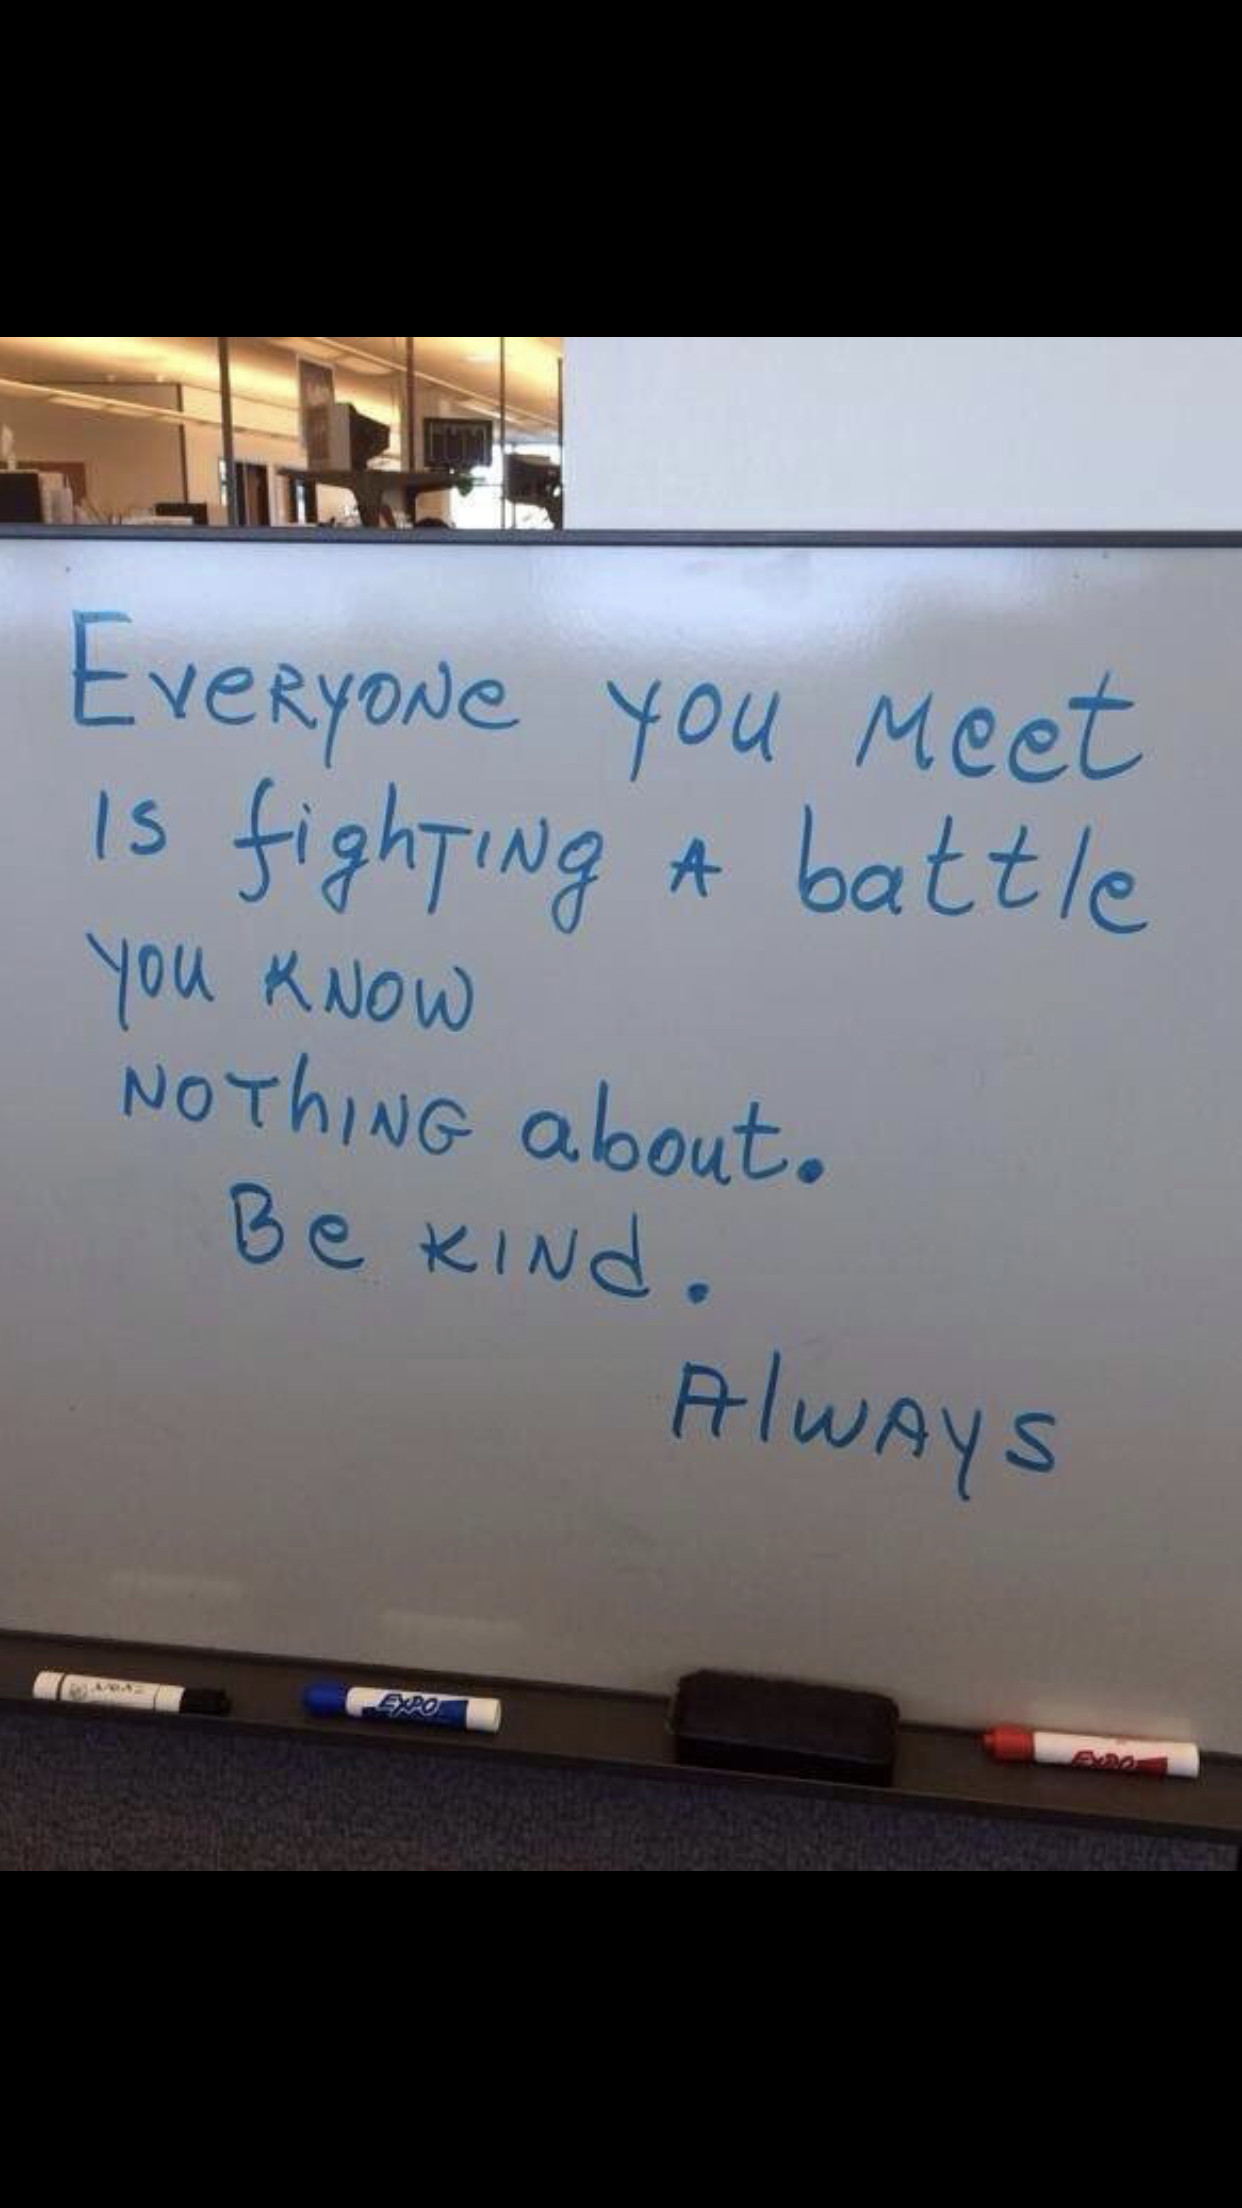 Everyone you meet
is fighting a battle
you know
nothing about.
Be kind.
Always
EXPO
EXPO